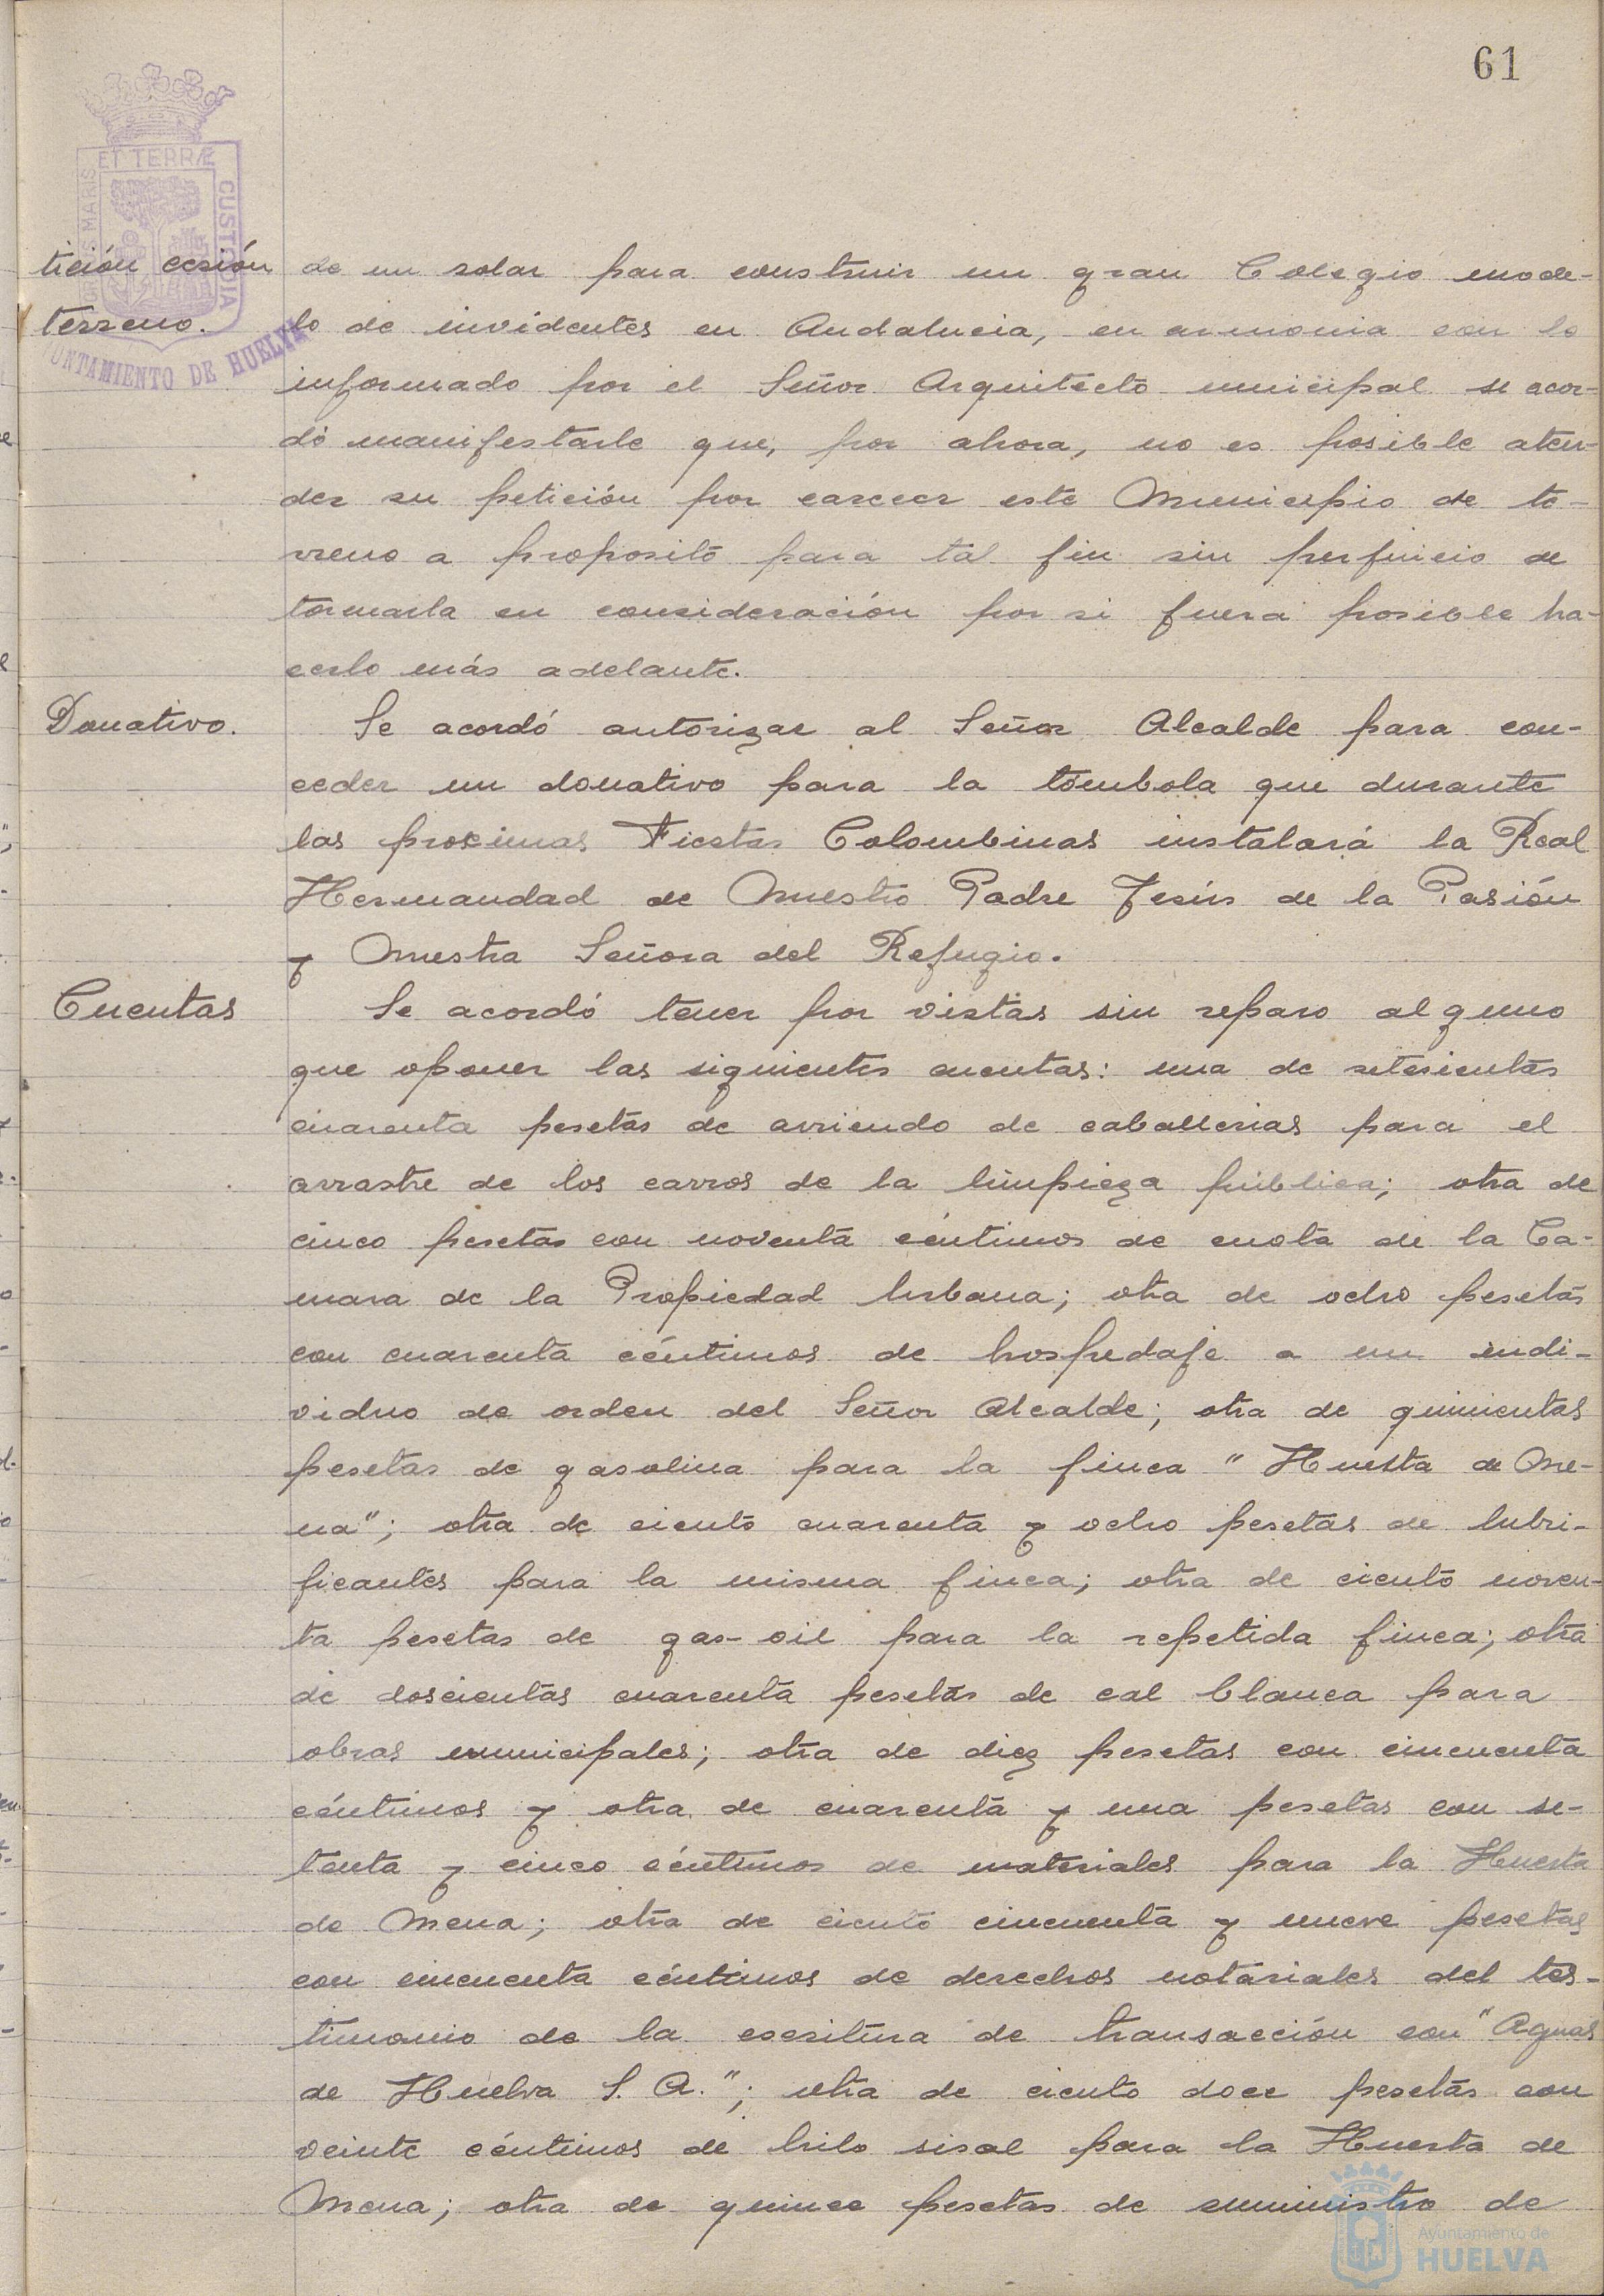 61
ET TERRÆ
MARIS
CUSTODIA
UNTAMIENTO DE HUELVA
tición cesión de un solar para construir un gran Colegio mode-
terreno. lo de invidentes en Andalucia, en armonia con lo
informado por el Señor Arquitecto municipal se acor-
dó manifestarle que, por ahora, no es posible aten-
der su petición por carecer este Municipio de te-
rreno a proposito para tal fin sin perjuicio de
tomarla en consideración por si fuera posible ha-
cerlo más adelante.
Donativo. Se acordó autorizar al Señor Alcalde para con-
ceder un donativo para la tómbola que durante
las proximas Fiestas Colombinas instalará la Real
Hermandad de Nuestro Padre Jesús de la Pasión
y Nuestra Señora del Refugio.
Cuentas Se acordó tener por vistas sin reparo alguno
que oponer las siguientes cuentas: una de setecientas
cuarenta pesetas de arriendo de caballerias para el
arrastre de los carros de la limpieza pública; otra de
cinco pesetas con noventa céntimos de cuota de la Ca-
mara de la Propiedad Urbana; otra de ocho pesetas
con cuarenta céntimos de hospedaje a un indi-
viduo de orden del Señor Alcalde; otra de quinientas
pesetas de gasolina para la finca "Huerta de Me-
na"; otra de ciento cuarenta y ocho pesetas de lubri-
ficantes para la misma finca; otra de ciento noven-
ta pesetas de gas-oil para la repetida finca; otra
de doscientas cuarenta pesetas de cal blanca para
obras municipales; otra de diez pesetas con cincuenta
céntimos y otra de cuarenta y una pesetas con se-
tenta y cinco céntimos de materiales para la Huerta
de Mena; otra de ciento cincuenta y nueve pesetas
con cincuenta céntimos de derechos notariales del tes-
timonio de la escritura de transacción con "Aguas
de Huelva S. A."; otra de ciento doce pesetas con
veinte céntimos de hilo sisal para la Huerta de
Mena; otra de quince pesetas de suministro de
Ayuntamiento de
HUELVA